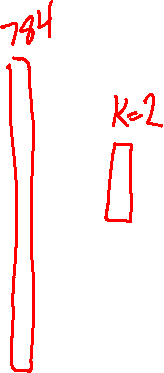 784
K=2